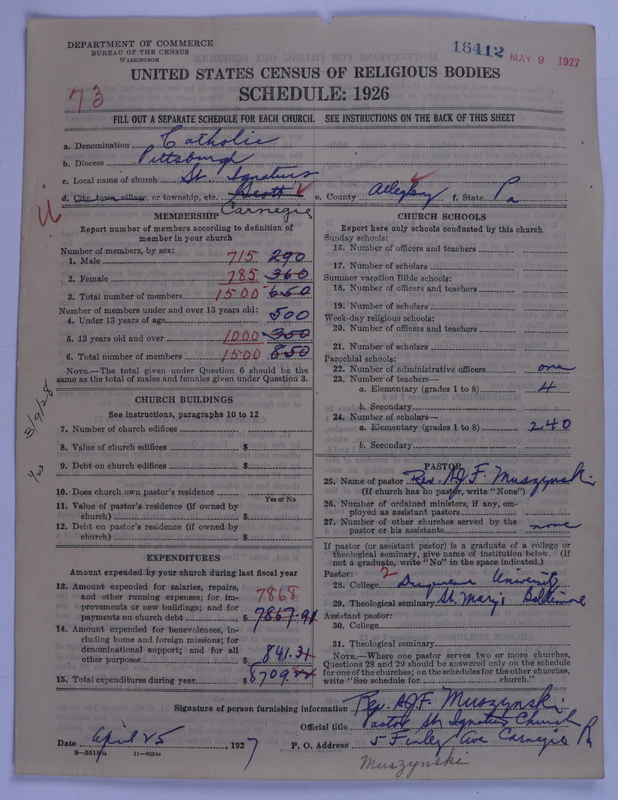 DEPARTMENT OF COMMERCE
BUREAU OF THE CENSUS
WASHINGTON
18412
MAY 9 1927
UNITED STATES CENSUS OF RELIGIOUS BODIES
SCHEDULE: 1926
73
FILL OUT A SEPARATE SCHEDULE FOR EACH CHURCH. SEE INSTRUCTIONS ON THE BACK OF THIS SHEET
a. Denomination Catholic
b. Diocese Pittsburgh
c. Local name of church St. Ignatius
d. City, town, village, or township, etc. Scott e. County Allegheny f. State Pa
Carnegie
MEMBERSHIP
Report number of members according to definition of
member in your church
Number of members, by sex:
1. Male 715 290
2. Female 785 360
3. Total number of members 1500 650
Number of members under and over 13 years old:
4. Under 13 years of age 500
5. 13 years old and over 1000 350
6. Total number of members 1500 850
NOTE.—The total given under Question 6 should be the
same as the total of males and females given under Question 3.
3/9/28
CHURCH BUILDINGS
See instructions, paragraphs 10 to 12
7. Number of church edifices
8. Value of church edifices $
9. Debt on church edifices $
10. Does church own pastor's residence
Yes or No
11. Value of pastor's residence (if owned by
church) $
12. Debt on pastor's residence (if owned by
church) $
EXPENDITURES
Amount expended by your church during last fiscal year
13. Amount expended for salaries, repairs,
and other running expenses; for im-
provements or new buildings; and for
payments on church debt $ 7868 7867.91
14. Amount expended for benevolences, in-
cluding home and foreign missions; for
denominational support; and for all
other purposes $ 841.31
15. Total expenditures during year $ 8709
CHURCH SCHOOLS
Report here only schools conducted by this church
Sunday schools:
16. Number of officers and teachers
17. Number of scholars
Summer vacation Bible schools:
18. Number of officers and teachers
19. Number of scholars
Week-day religious schools:
20. Number of officers and teachers
21. Number of scholars
Parochial schools:
22. Number of administrative officers one
23. Number of teachers—
a. Elementary (grades 1 to 8) 4
b. Secondary
24. Number of scholars—
a. Elementary (grades 1 to 8) 240
b. Secondary
PASTOR
25. Name of pastor Rev. A.J.F. Muszynski
(If church has no pastor, write "None")
26. Number of ordained ministers, if any, em-
ployed as assistant pastors
27. Number of other churches served by the
pastor or his assistants none
If pastor (or assistant pastor) is a graduate of a college or
theological seminary, give name of institution below. (If
not a graduate, write "No" in the space indicated.)
Pastor: 2
28. College Duquesne University
29. Theological seminary St. Mary's Baltimore
Assistant pastor:
30. College
31. Theological seminary
NOTE.—Where one pastor serves two or more churches,
Questions 28 and 29 should be answered only on the schedule
for one of the churches; on the schedules for the other churches,
write "See schedule for church."
Signature of person furnishing information Rev. A.J.F. Muszynski
Official title Pastor St. Ignatius Church
Date April 25, 1927 P. O. Address 5 Finley Ave Carnegie Pa
Muszynski